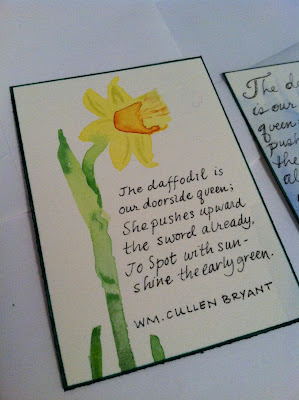 The daffodil is
our doorside queen;
She pushes upward
the sword already,
To Spot with sun-
shine the early green.
WM. CULLEN BRYANT
The da
is our
queen
push
the
al